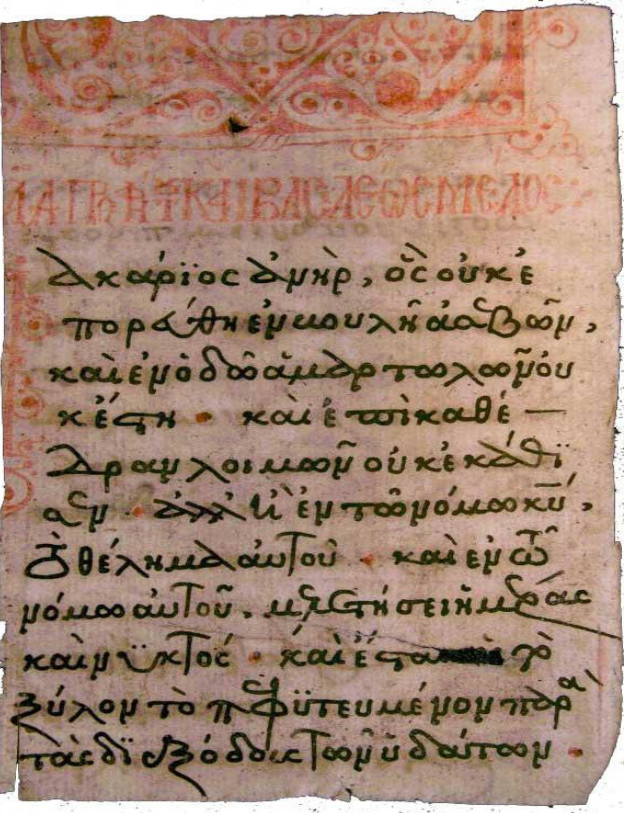 ΚΑΙ ΒΑΣΙΛΕΩΣ ΜΕΛΟΣ
ακάρϊος ἀνὴρ, ὃς οὐκ ἐ
πορεύθη ἐν βουλῆ ἀσεβῶν,
καὶ ἐν ὁδῶ ἁμαρτωλῶν οὐ
κ ἔστη · καὶ ἐπὶ καθέ —
δραν λοιμῶν οὐκ ἐκάθϊ
σεν · ἀλλ' ἢ ἐν τῶ νόμω κ̅υ̅,
τὸ θέλημα αὐτοῦ · καὶ ἐν τῶ
νόμω αὐτοῦ, μελετήσει ἡμέρας
καὶ νϋκτός · καὶ ἔσται τὸ
ξύλον τὸ πεφϋτευμένον παρὰ
τὰς δϊεξόδους τῶν ὑδάτων ·